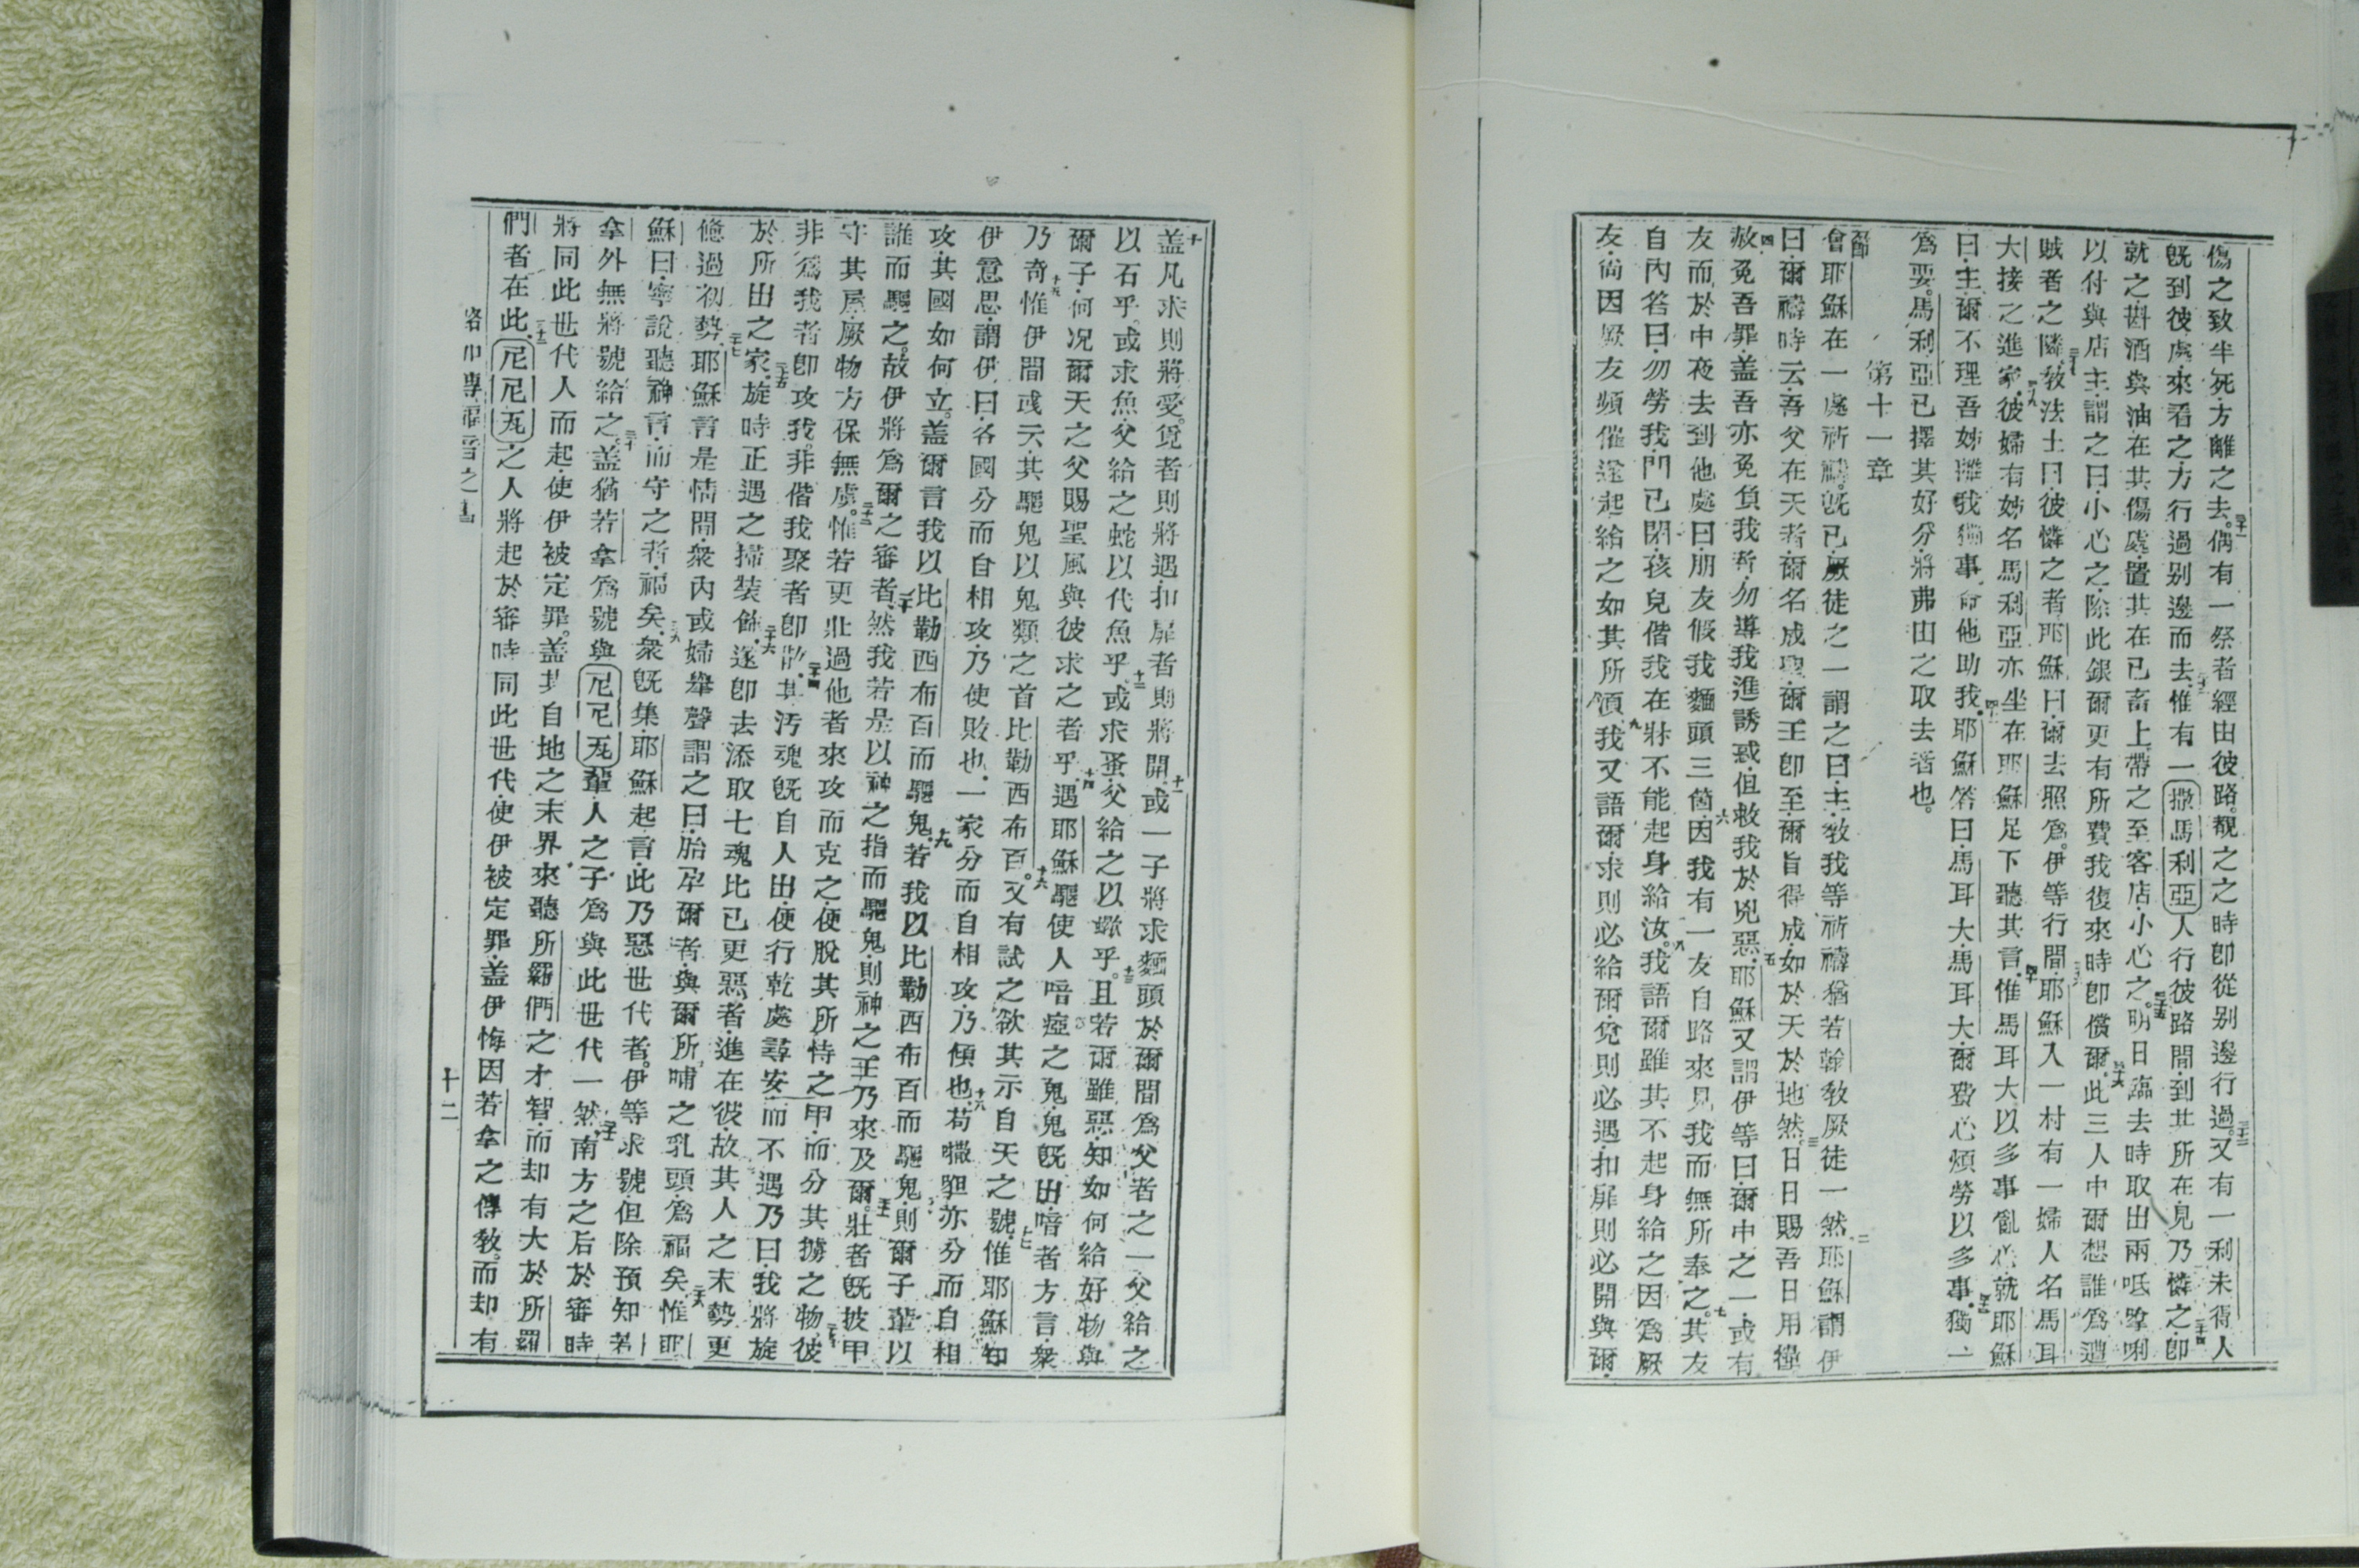 傷之致半死·方離之去。偶有一祭者經由彼路。覩之之時卽從别邊行過。又有一利未得人
旣到彼處·來看之·方行過别邊而去·惟有一撒馬利亞人行彼路間·到其所在·見乃憐之·卽
就之·斟酒與油在其傷處·置其在已畜上·帶之至客店·小心之。明日臨去時取出兩呧
以付與店主·謂之曰·小心之·除此銀爾更有所費·我復來時卽償爾·此三人中爾想誰爲遭
賊者之隣·敎法士曰·彼憐之者·耶穌曰·爾去照爲。伊等行間·耶穌入一村·有一婦人名馬耳
大接之進家·彼婦有姊名馬利亞·亦坐在耶穌足下聽其言·惟馬耳大以多事亂心·就耶穌
曰·主·爾不理吾姊離我獨事·命他助我·耶穌答曰·馬耳大·馬耳大·爾費心煩勞以多事·獨一
爲要。馬利亞已擇其好分·將弗由之取去者也。
第十一章
會耶穌在一處祈禱·旣已·厥徒之一謂之曰·主·敎我等祈禱·猶若翰敎厥徒一然·耶穌謂伊
曰·爾禱時云·吾父在天者·爾名成聖·爾王卽至·爾旨得成·如於天於地然·日日賜吾日用糧
赦免吾罪·蓋吾亦免負我者·勿導我進誘惑·但救我於兇惡·耶穌又謂伊等曰·爾中之一·或有
友·而於中夜去到他處曰·朋友假我麵頭三箇·因我有一友自路來見我·而無所奉之。其友
自內答曰·勿勞我·門已閉·孩兒偕我在牀·不能起身給汝。我語爾·雖其不起身給之因爲厥
友·尙因厥友頻催·遂起給之如其所須·我又語爾·求則必給爾·覓則必遇·扣扉則必開與爾·
蓋凡求則將受。覓者則將遇·扣扉者則將開·或一子將求麵頭於爾間爲父者之一·父給之
以石乎·或求魚·父給之蛇以代魚乎·或求蛋·父給之以蠍乎。且若爾雖惡·知如何給好物與
爾子·何况爾天之父賜聖風與彼求之者乎·遇耶穌驅使人喑瘂之鬼·鬼旣出·喑者方言·衆
乃奇·惟伊間或云·其驅鬼以鬼類之首比勒西布百。又有試之·欲其示自天之號·惟耶穌知
伊意思·謂伊曰·各國分而自相攻·乃使敗也·一家分而自相攻·乃傾也·苟亦分而自相
攻·其國如何立。蓋爾言我以比勒西布百而驅鬼·若我以比勒西布百而驅鬼·則爾子輩以
誰而驅之。故伊將爲爾之審者·然我若是以神之指而驅鬼·則神之王乃來及爾。壯者旣披甲
守其屋·厥物方保無虞。惟若更壯過他者來攻而克之·便脫其所恃之甲·而分其擄之物·彼
非爲我者卽攻我·非偕我聚者卽散·其汚魂旣自人出·便行乾處尋安·而不遇乃曰·我將旋
於所出之家·旋時正遇之掃裝飾·遂卽去添取七魂比已更惡者·進在彼·故其人之末勢更
憊過初勢·耶穌言是情間·衆內或婦舉聲謂之曰·胎孕爾者·與爾所哺之乳頭爲福矣·惟耶
穌曰·寧說聽神言·而守之者·福矣·衆旣集·耶穌起言·此乃惡世代者。伊等求號·但除預知若
拿外無將號給之·蓋猶若拿爲號與尼尼瓦輩·人之子爲與此世代一然·南方之后於審時
將同此世代人而起·使伊被定罪。蓋其自地之末界來·聽所羅們之才智·而却有大於所羅
們者在此·尼尼瓦之人將起於審時同此世代·使伊被定罪·蓋伊悔因若拿之傳敎。而却有
路加傳福音之書
十二